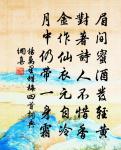 眉間蜜酒發輕黃
對著詩人不惜香
金作仙衣元自冷
月中仍帶一身霜
楊萬里蠟梅四首